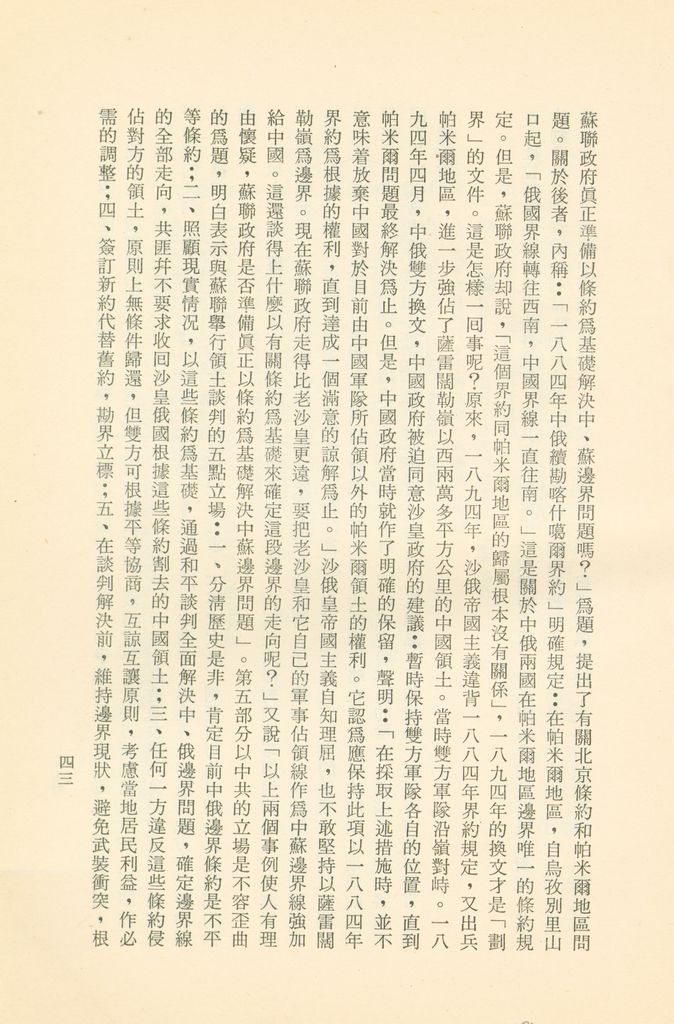 蘇聯政府眞正準備以條約爲基礎解決中、蘇邊界問題嗎？」爲題，提出了有關北京條約和帕米爾地區問
題。關於後者，內稱：「一八八四年中俄續勘喀什噶爾界約」明確規定：在帕米爾地區，自烏孜別里山
口起，「俄國界線轉往西南，中國界線一直往南。」這是關於中俄兩國在帕米爾地區邊界唯一的條約規
定。但是，蘇聯政府却說，「這個界約同帕米爾地區的歸屬根本沒有關係」，一八九四年的換文才是「劃
界」的文件。這是怎樣一回事呢？原來，一八九四年，沙俄帝國主義違背一八八四年界約規定，又出兵
帕米爾地區，進一步強佔了薩雷闊勒嶺以西兩萬多平方公里的中國領土。當時雙方軍隊沿嶺對峙。一八
九四年四月，中俄雙方換文，中國政府被迫同意沙皇政府的建議：暫時保持雙方軍隊各自的位置，直到
帕米爾問題最終解決爲止。但是，中國政府當時就作了明確的保留，聲明：「在採取上述措施時，並不
意味着放棄中國對於目前由中國軍隊所佔領以外的帕米爾領土的權利。它認爲應保持此項以一八八四年
界約爲根據的權利，直到達成一個滿意的諒解爲止。」沙俄皇帝國主義自知理屈，也不敢堅持以薩雷闊
勒嶺爲邊界。現在蘇聯政府走得比老沙皇更遠，要把老沙皇和它自己的軍事佔領線作爲中蘇邊界線強加
給中國。這還談得上什麼以有關條約爲基礎來確定這段邊界的走向呢？」又說「以上兩個事例使人有理
由懷疑，蘇聯政府是否準備眞正以條約爲基礎解決中蘇邊界問題」。第五部分以中共的立場是不容歪曲
的爲題，明白表示與蘇聯舉行領土談判的五點立場：一、分淸歷史是非，肯定目前中俄邊界條約是不平
等條約；二、照顧現實情況，以這些條約爲基礎，通過和平談判全面解決中、俄邊界問題，確定邊界線
的全部走向，共匪幷不要求收回沙皇俄國根據這些條約割去的中國領土；三、任何一方違反這些條約侵
佔對方的領土，原則上無條件歸還，但雙方可根據平等協商，互諒互讓原則，考慮當地居民利益，作必
需的調整；四、簽訂新約代替舊約，勘界立標；五、在談判解決前，維持邊界現狀，避免武裝衝突，根
四三